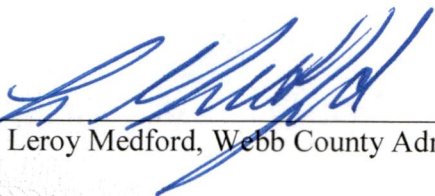 Leroy Medford, Webb County Adm